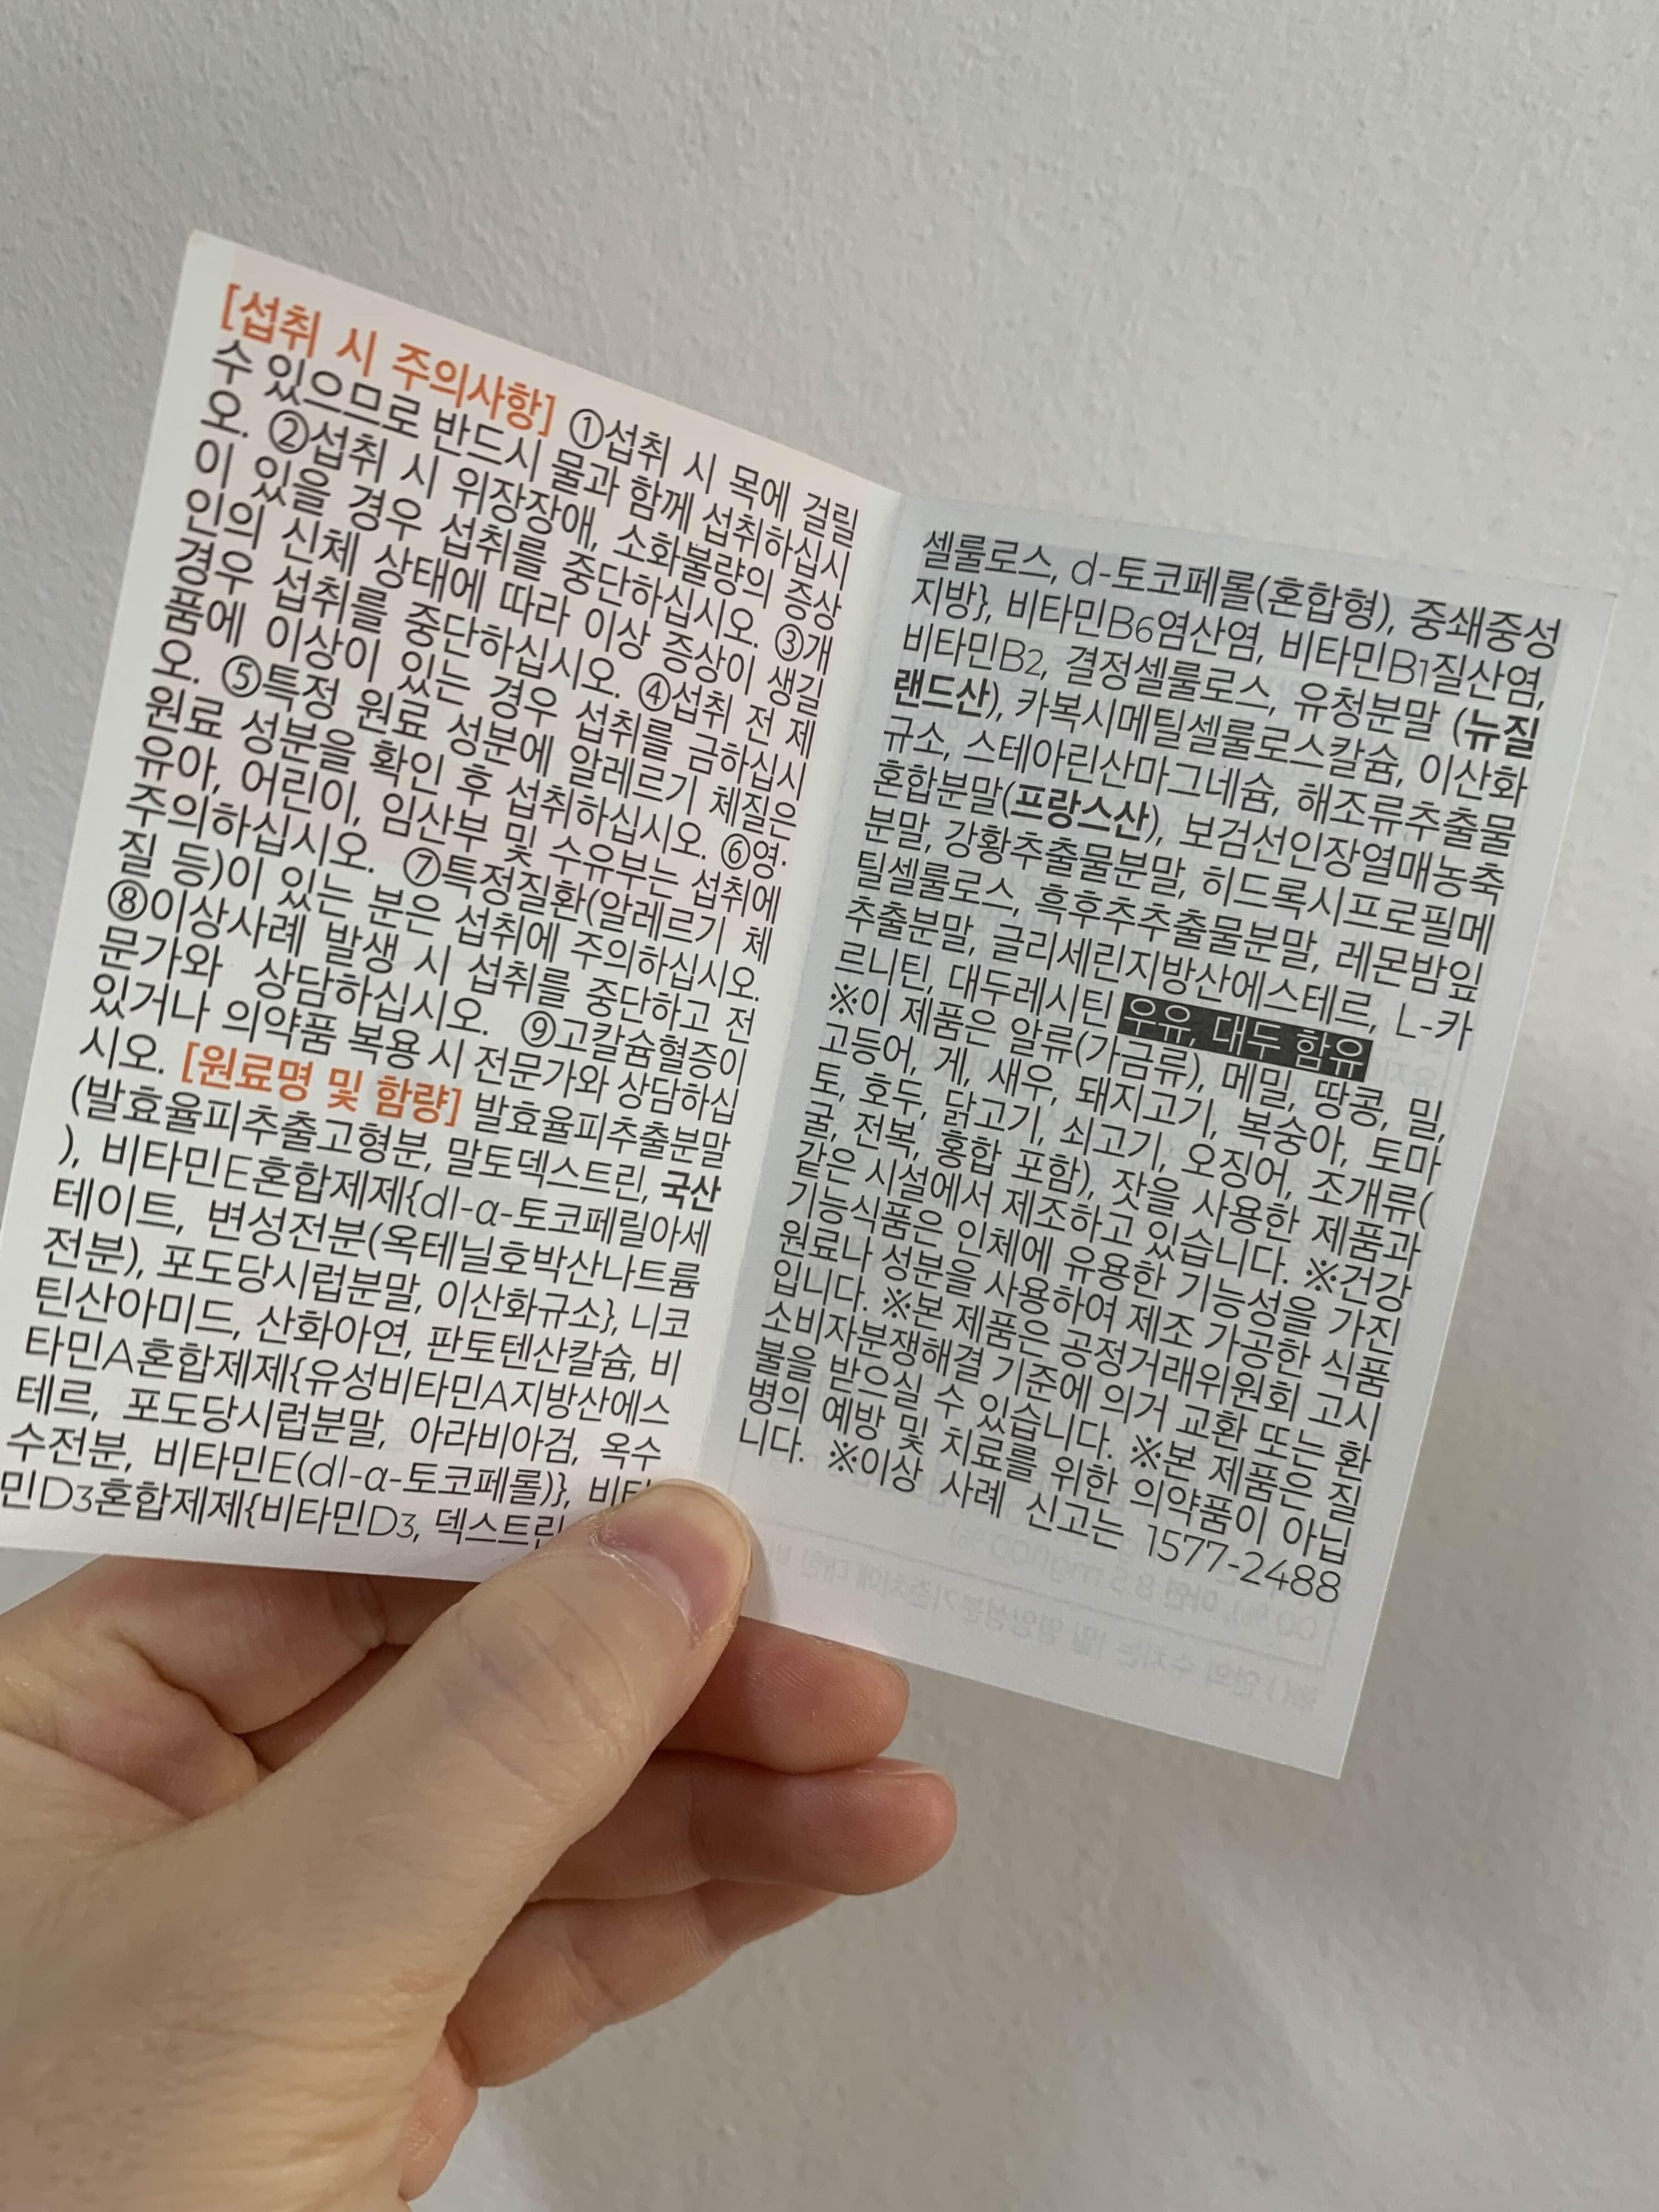 [섭취 시 주의사항] ①섭취 시 목에 걸릴
수 있으므로 반드시 물과 함께 섭취하십시
오. ②섭취 시 위장장애, 소화불량의 증상
이 있을 경우 섭취를 중단하십시오. ③개
인의 신체 상태에 따라 이상 증상이 생길
경우 섭취를 중단하십시오. ④섭취 전 제
품에 이상이 있는 경우 섭취를 금하십시
오. ⑤특정 원료 성분에 알레르기 체질은
원료 성분을 확인 후 섭취하십시오. ⑥영·
유아, 어린이, 임산부 및 수유부는 섭취에
주의하십시오. ⑦특정질환(알레르기 체
질 등)이 있는 분은 섭취에 주의하십시오.
⑧이상사례 발생 시 섭취를 중단하고 전
문가와 상담하십시오. ⑨고칼슘혈증이
있거나 의약품 복용 시 전문가와 상담하십
시오. [원료명 및 함량] 발효율피추출분말
(발효율피추출고형분, 말토덱스트린, 국산
), 비타민E혼합제제{dl-α-토코페릴아세
테이트, 변성전분(옥테닐호박산나트륨
전분), 포도당시럽분말, 이산화규소}, 니코
틴산아미드, 산화아연, 판토텐산칼슘, 비
타민A혼합제제{유성비타민A지방산에스
테르, 포도당시럽분말, 아라비아검, 옥수
수전분, 비타민E(dl-α-토코페롤)}, 비타
민D3혼합제제{비타민D3, 덱스트린
셀룰로스, d-토코페롤(혼합형), 중쇄중성
지방}, 비타민B6염산염, 비타민B1질산염,
비타민B2, 결정셀룰로스, 유청분말 (뉴질
랜드산), 카복시메틸셀룰로스칼슘, 이산화
규소, 스테아린산마그네슘, 해조류추출물
혼합분말(프랑스산), 보검선인장열매농축
분말, 강황추출물분말, 히드록시프로필메
틸셀룰로스, 흑후추추출물분말, 레몬밤잎
추출분말, 글리세린지방산에스테르, L-카
르니틴, 대두레시틴 우유, 대두 함유
※이 제품은 알류(가금류), 메밀, 땅콩, 밀,
고등어, 게, 새우, 돼지고기, 복숭아, 토마
토, 호두, 닭고기, 쇠고기, 오징어, 조개류(
굴, 전복, 홍합 포함), 잣을 사용한 제품과
같은 시설에서 제조하고 있습니다. ※건강
기능식품은 인체에 유용한 기능성을 가진
원료나 성분을 사용하여 제조 가공한 식품
입니다. ※본 제품은 공정거래위원회 고시
소비자분쟁해결 기준에 의거 교환 또는 환
불을 받으실 수 있습니다. ※본 제품은 질
병의 예방 및 치료를 위한 의약품이 아닙
니다. ※이상 사례 신고는 1577-2488